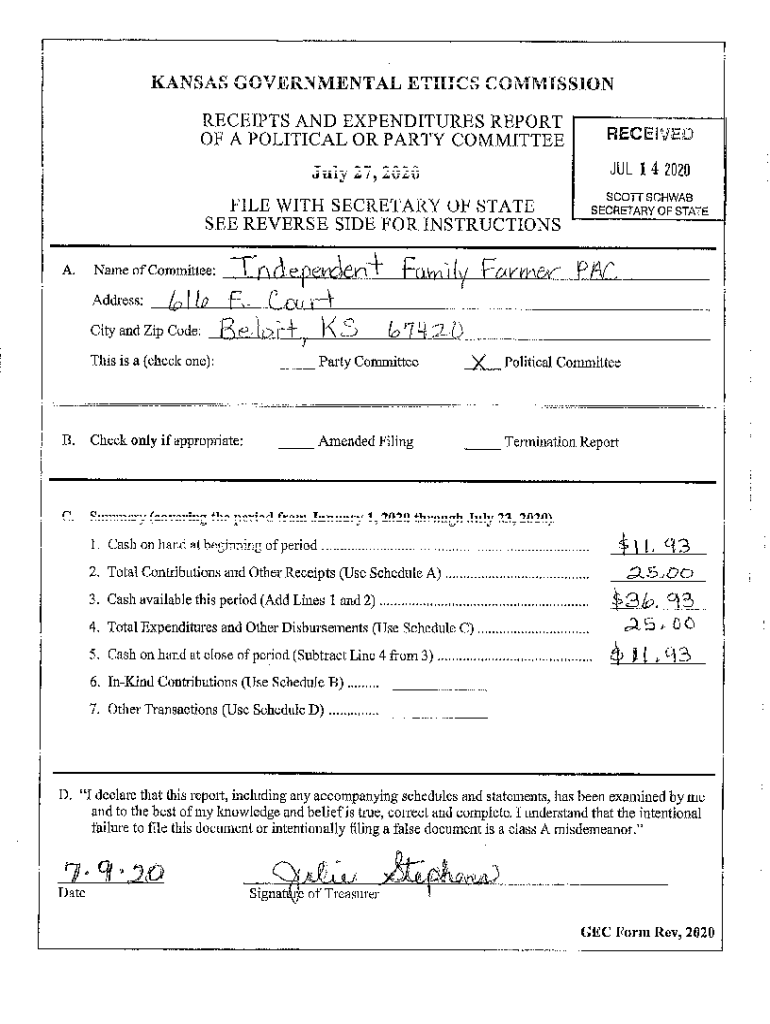 KANSAS GOVERNMENTAL ETHICS COMMISSION
RECEIPTS AND EXPENDITURES REPORT
OF A POLITICAL OR PARTY COMMITTEE
July 27, 2020
FILE WITH SECRETARY OF STATE
SEE REVERSE SIDE FOR INSTRUCTIONS
RECEIVED
JUL 14 2020
SCOTT SCHWAB
SECRETARY OF STATE
A. Name of Committee: Independent Family Farmer PAC
Address: 616 E. Court
City and Zip Code: Beloit, KS 67420
This is a (check one): Party Committee X Political Committee
B. Check only if appropriate: Amended Filing Termination Report
C. Summary (covering the period from January 1, 2020 through July 23, 2020)
1. Cash on hand at beginning of period $11.93
2. Total Contributions and Other Receipts (Use Schedule A) 25.00
3. Cash available this period (Add Lines 1 and 2) $36.93
4. Total Expenditures and Other Disbursements (Use Schedule C) 25.00
5. Cash on hand at close of period (Subtract Line 4 from 3) $11.93
6. In-Kind Contributions (Use Schedule B)
7. Other Transactions (Use Schedule D)
D. "I declare that this report, including any accompanying schedules and statements, has been examined by me
and to the best of my knowledge and belief is true, correct and complete. I understand that the intentional
failure to file this document or intentionally filing a false document is a class A misdemeanor."
7.9.20 Julie Stephens
Date Signature of Treasurer
GEC Form Rev, 2020